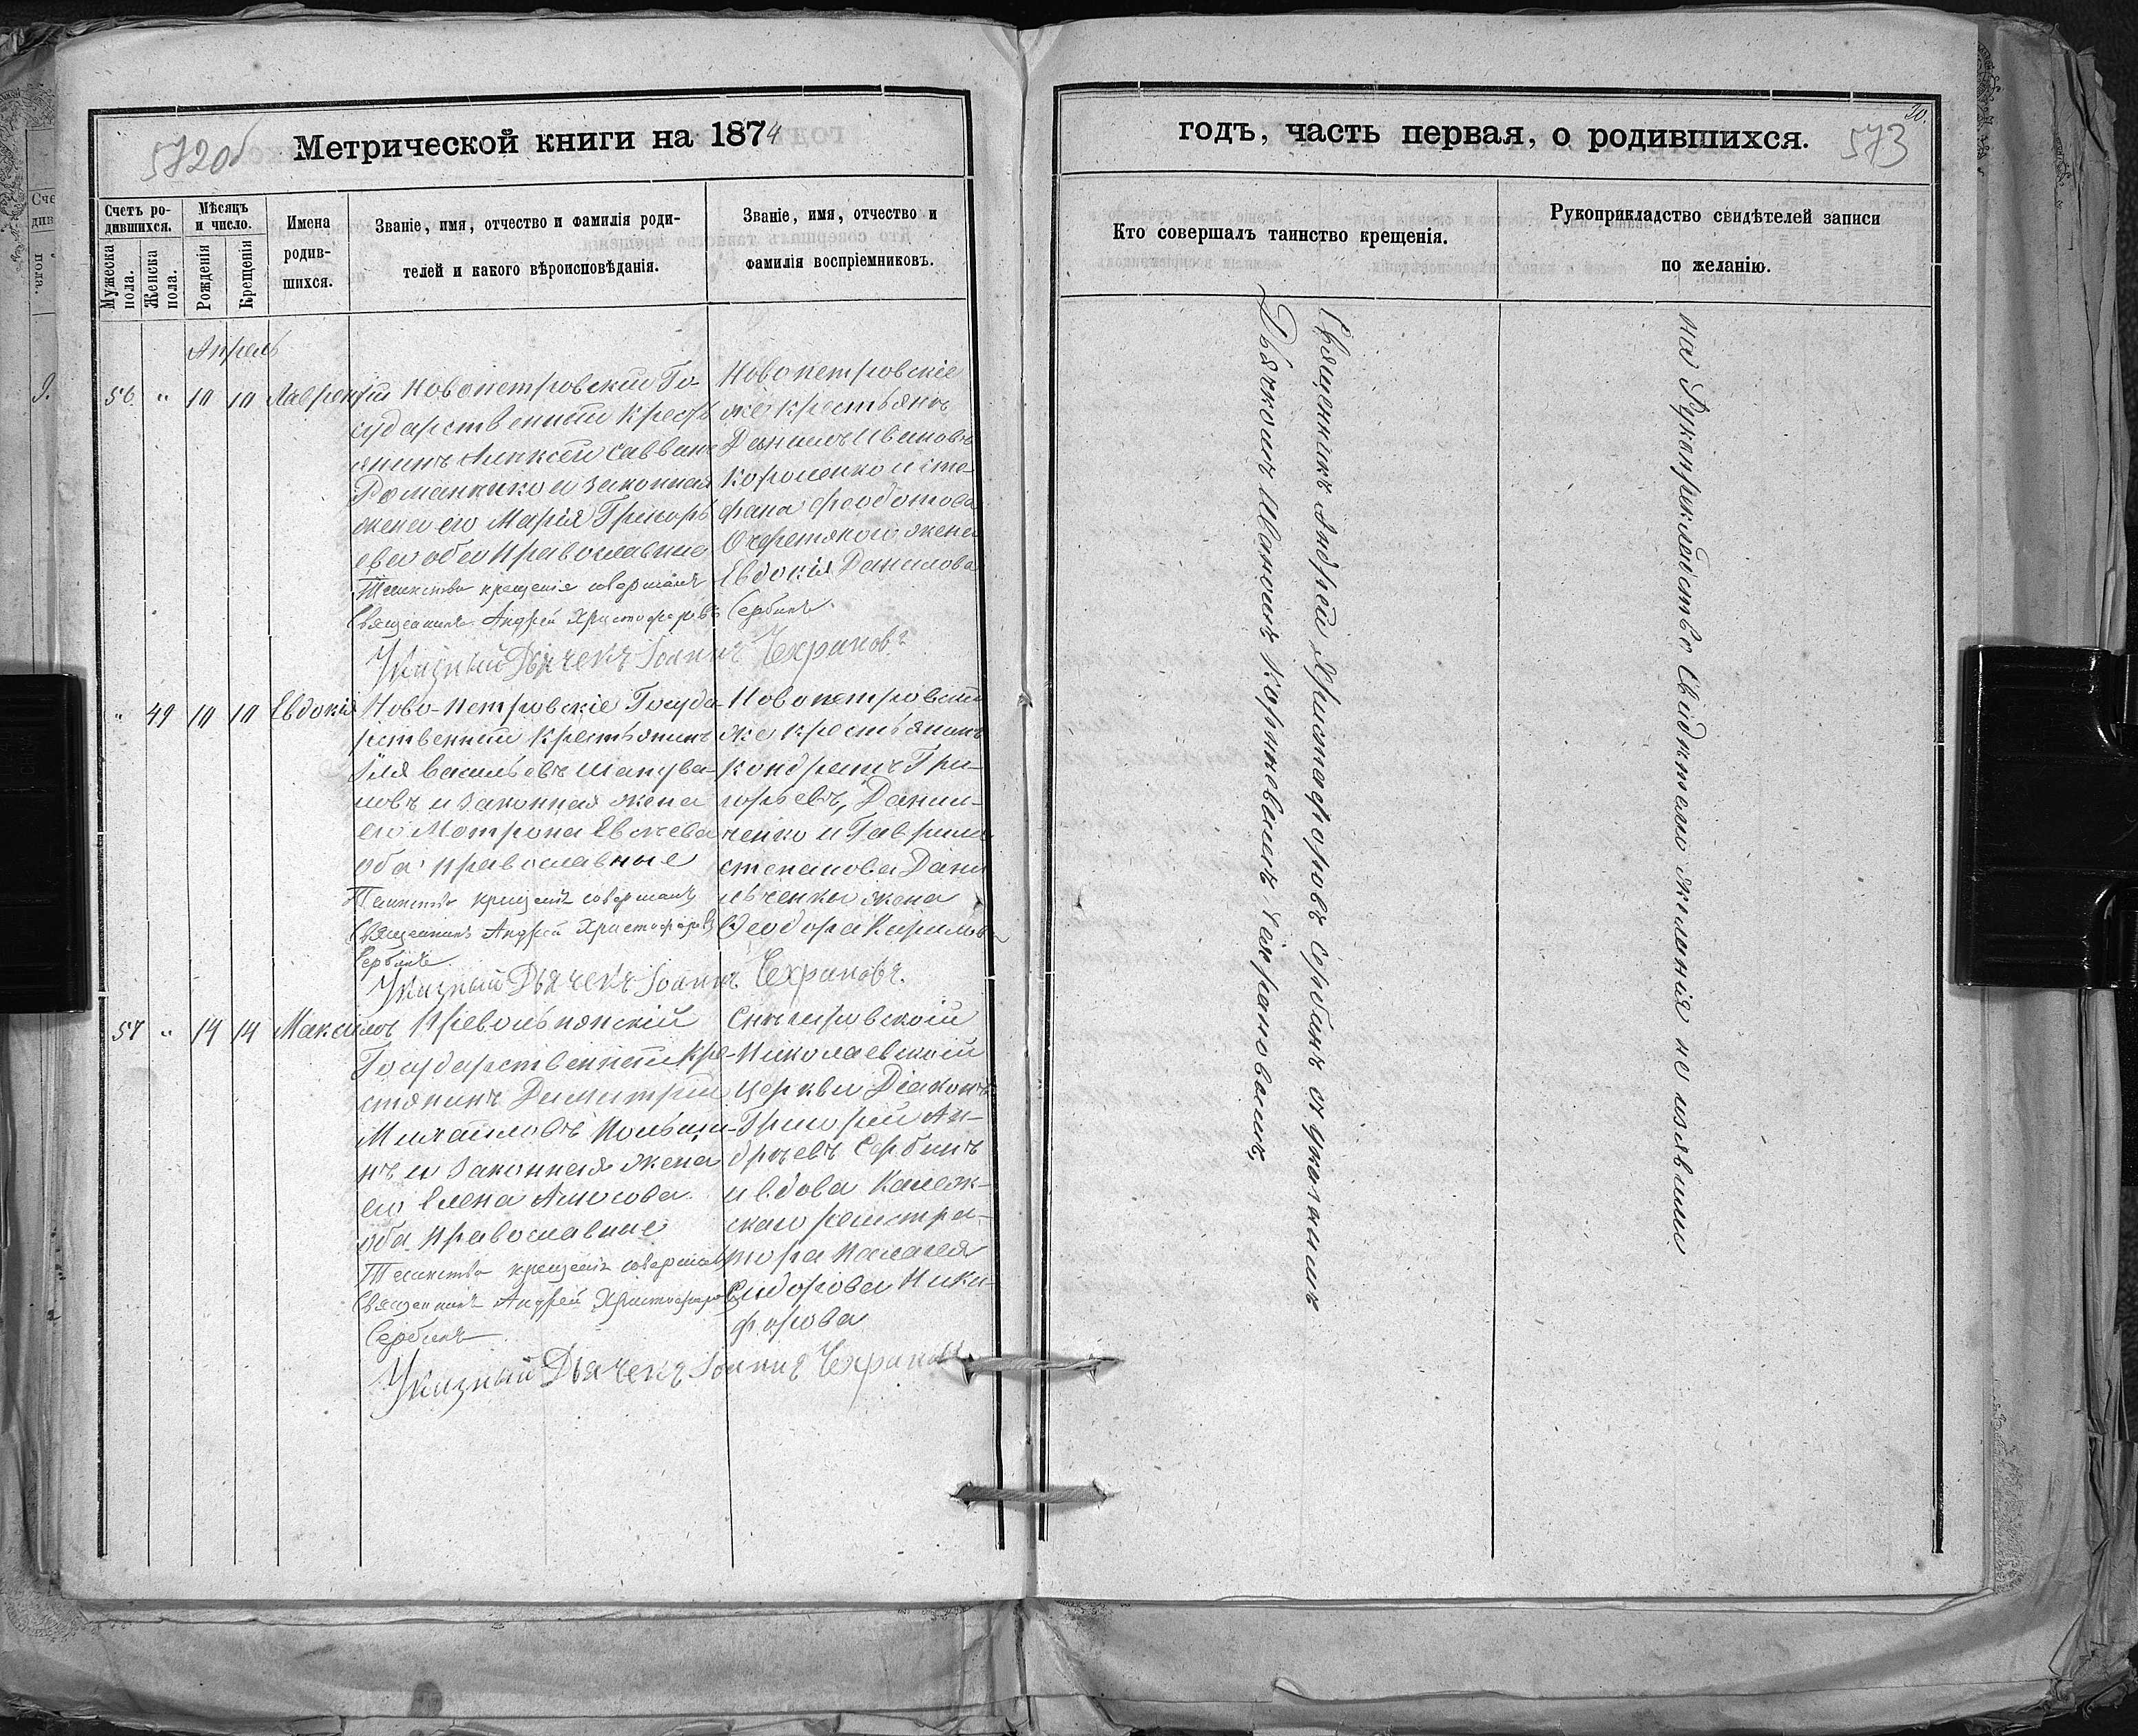 572об
Метрической книги на 1874
Счетъ ро-
дившихся.
Мужеска
пола.
Женска
пола.
Мѣсяцъ
и число.
Рожденія
Крещенія
Имена
родив-
шихся.
Званіе, имя, отчество и фамилія роди-
телей и какого вѣроисповѣданія.
Званіе, имя, отчество и
фамилія воспріемниковъ.
Апрель
56 " 10 10 Лаврентій
Новопетровскій Го-
сударственный кресть
янинъ Алексѣй Саввинъ
Романенко и законная
жена его Марія Григорь
ева оба православные
Таинство крещенія совершалъ
Священникъ Андрей Христофоровъ Сербинъ.
Указный Дьячекъ Іоаннъ Чехрановъ
Новопетровскіе
же крестьяне
Данилъ Ивановъ
и Сте-
фана Феодотова
жена
Евдокія Данилова
" 49 10 10 Евдокія
Ново-Петровскіе Госуда-
рственный крестьянинъ
Илія Васильевъ Шапува-
ловъ и законная жена
его Мотрона
оба православные
Таинство крещенія совершалъ
Священникъ Андрей Христофоровъ
Сербинъ
Указный Дьячекъ Іоаннъ Чехрановъ.
Новопетровскій
же крестьянинъ
Кондратъ Гри-
горьевъ, Данил-
ченко и Гаврила
Степанова Дани
льченки жена
Феодора Кирилов
57 " 14 14 Максимъ
Государственный Кре-
стянинъ Димитрій
Михаиловъ
нъ и законная жена
его Елена
оба православные
Таинство крещенія совершалъ
Священникъ Андрей Христофоровъ
Сербинъ
Указный Дьячекъ Іоаннъ Чехрановъ
Николаевской
церкви Діаконъ
Григорій Ан-
дреевъ Сербинъ
и вдова Калеж-
скаго регистра-
тора Палагея
Сидорова Ники-
форова
годъ, часть первая, о родившихся.
20.
573
Кто совершалъ таинство крещенія.
Рукоприкладство свидѣтелей записи
по желанію.
Священникъ Андрей Христофоровъ Сербинъ съ указнымъ
Дьячкомъ Иваномъ Корниевымъ Чехрановымъ.
на Рукоприкладство Свидѣтели желанія не изявили